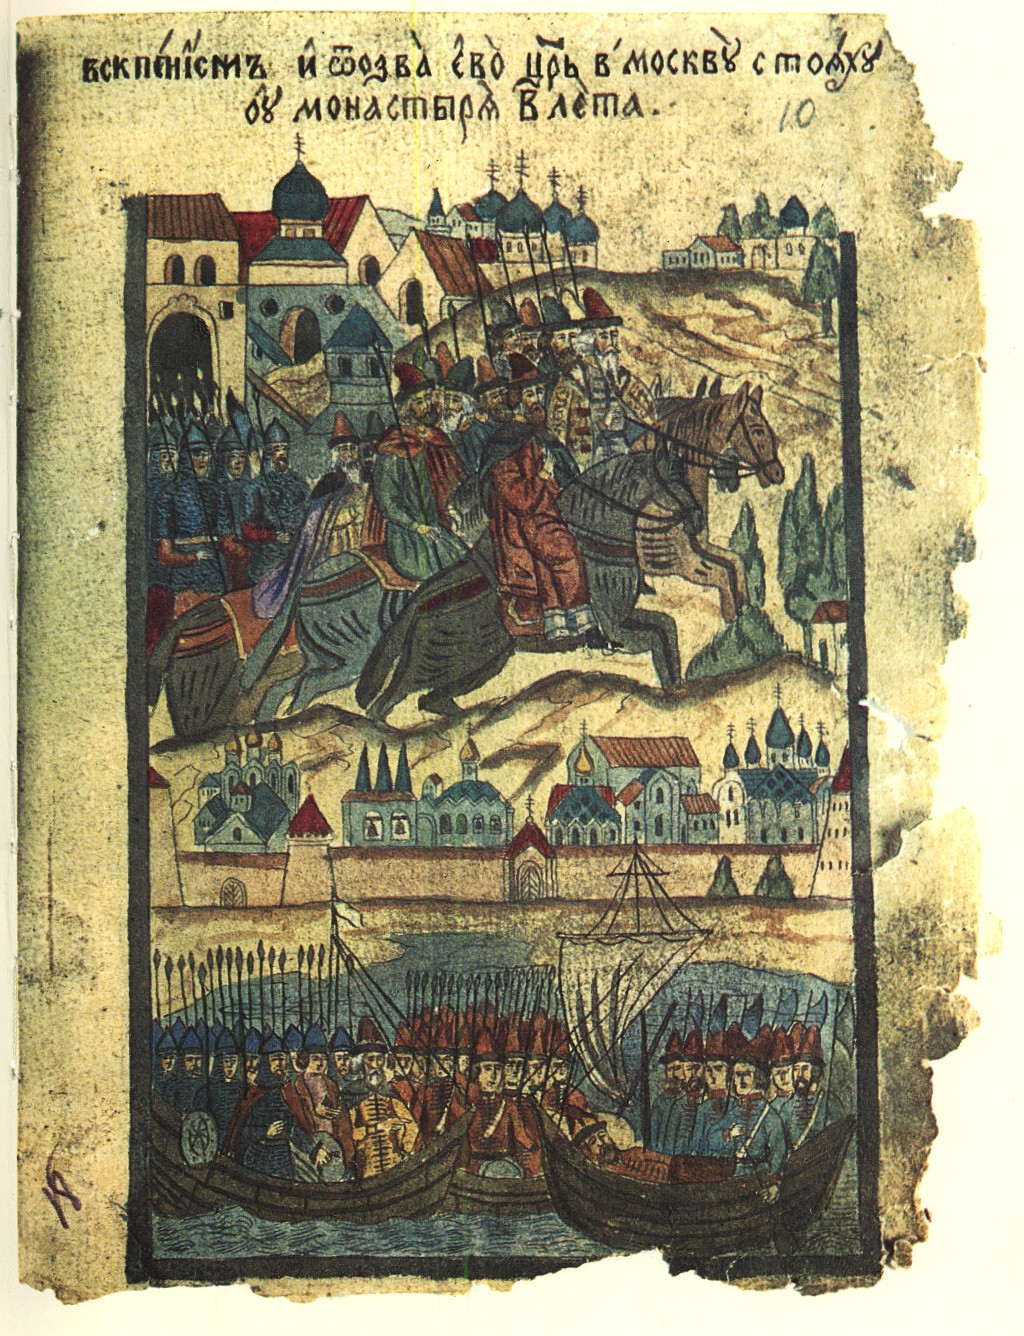 вскпе́нїемъ и҆ ѿозва̀ є҆во̀ цр҃ь в̾ москвꙋ̀ стоѧ́хꙋ
10
оу҆ монастырѧ̀ в҃ ле́та.
18